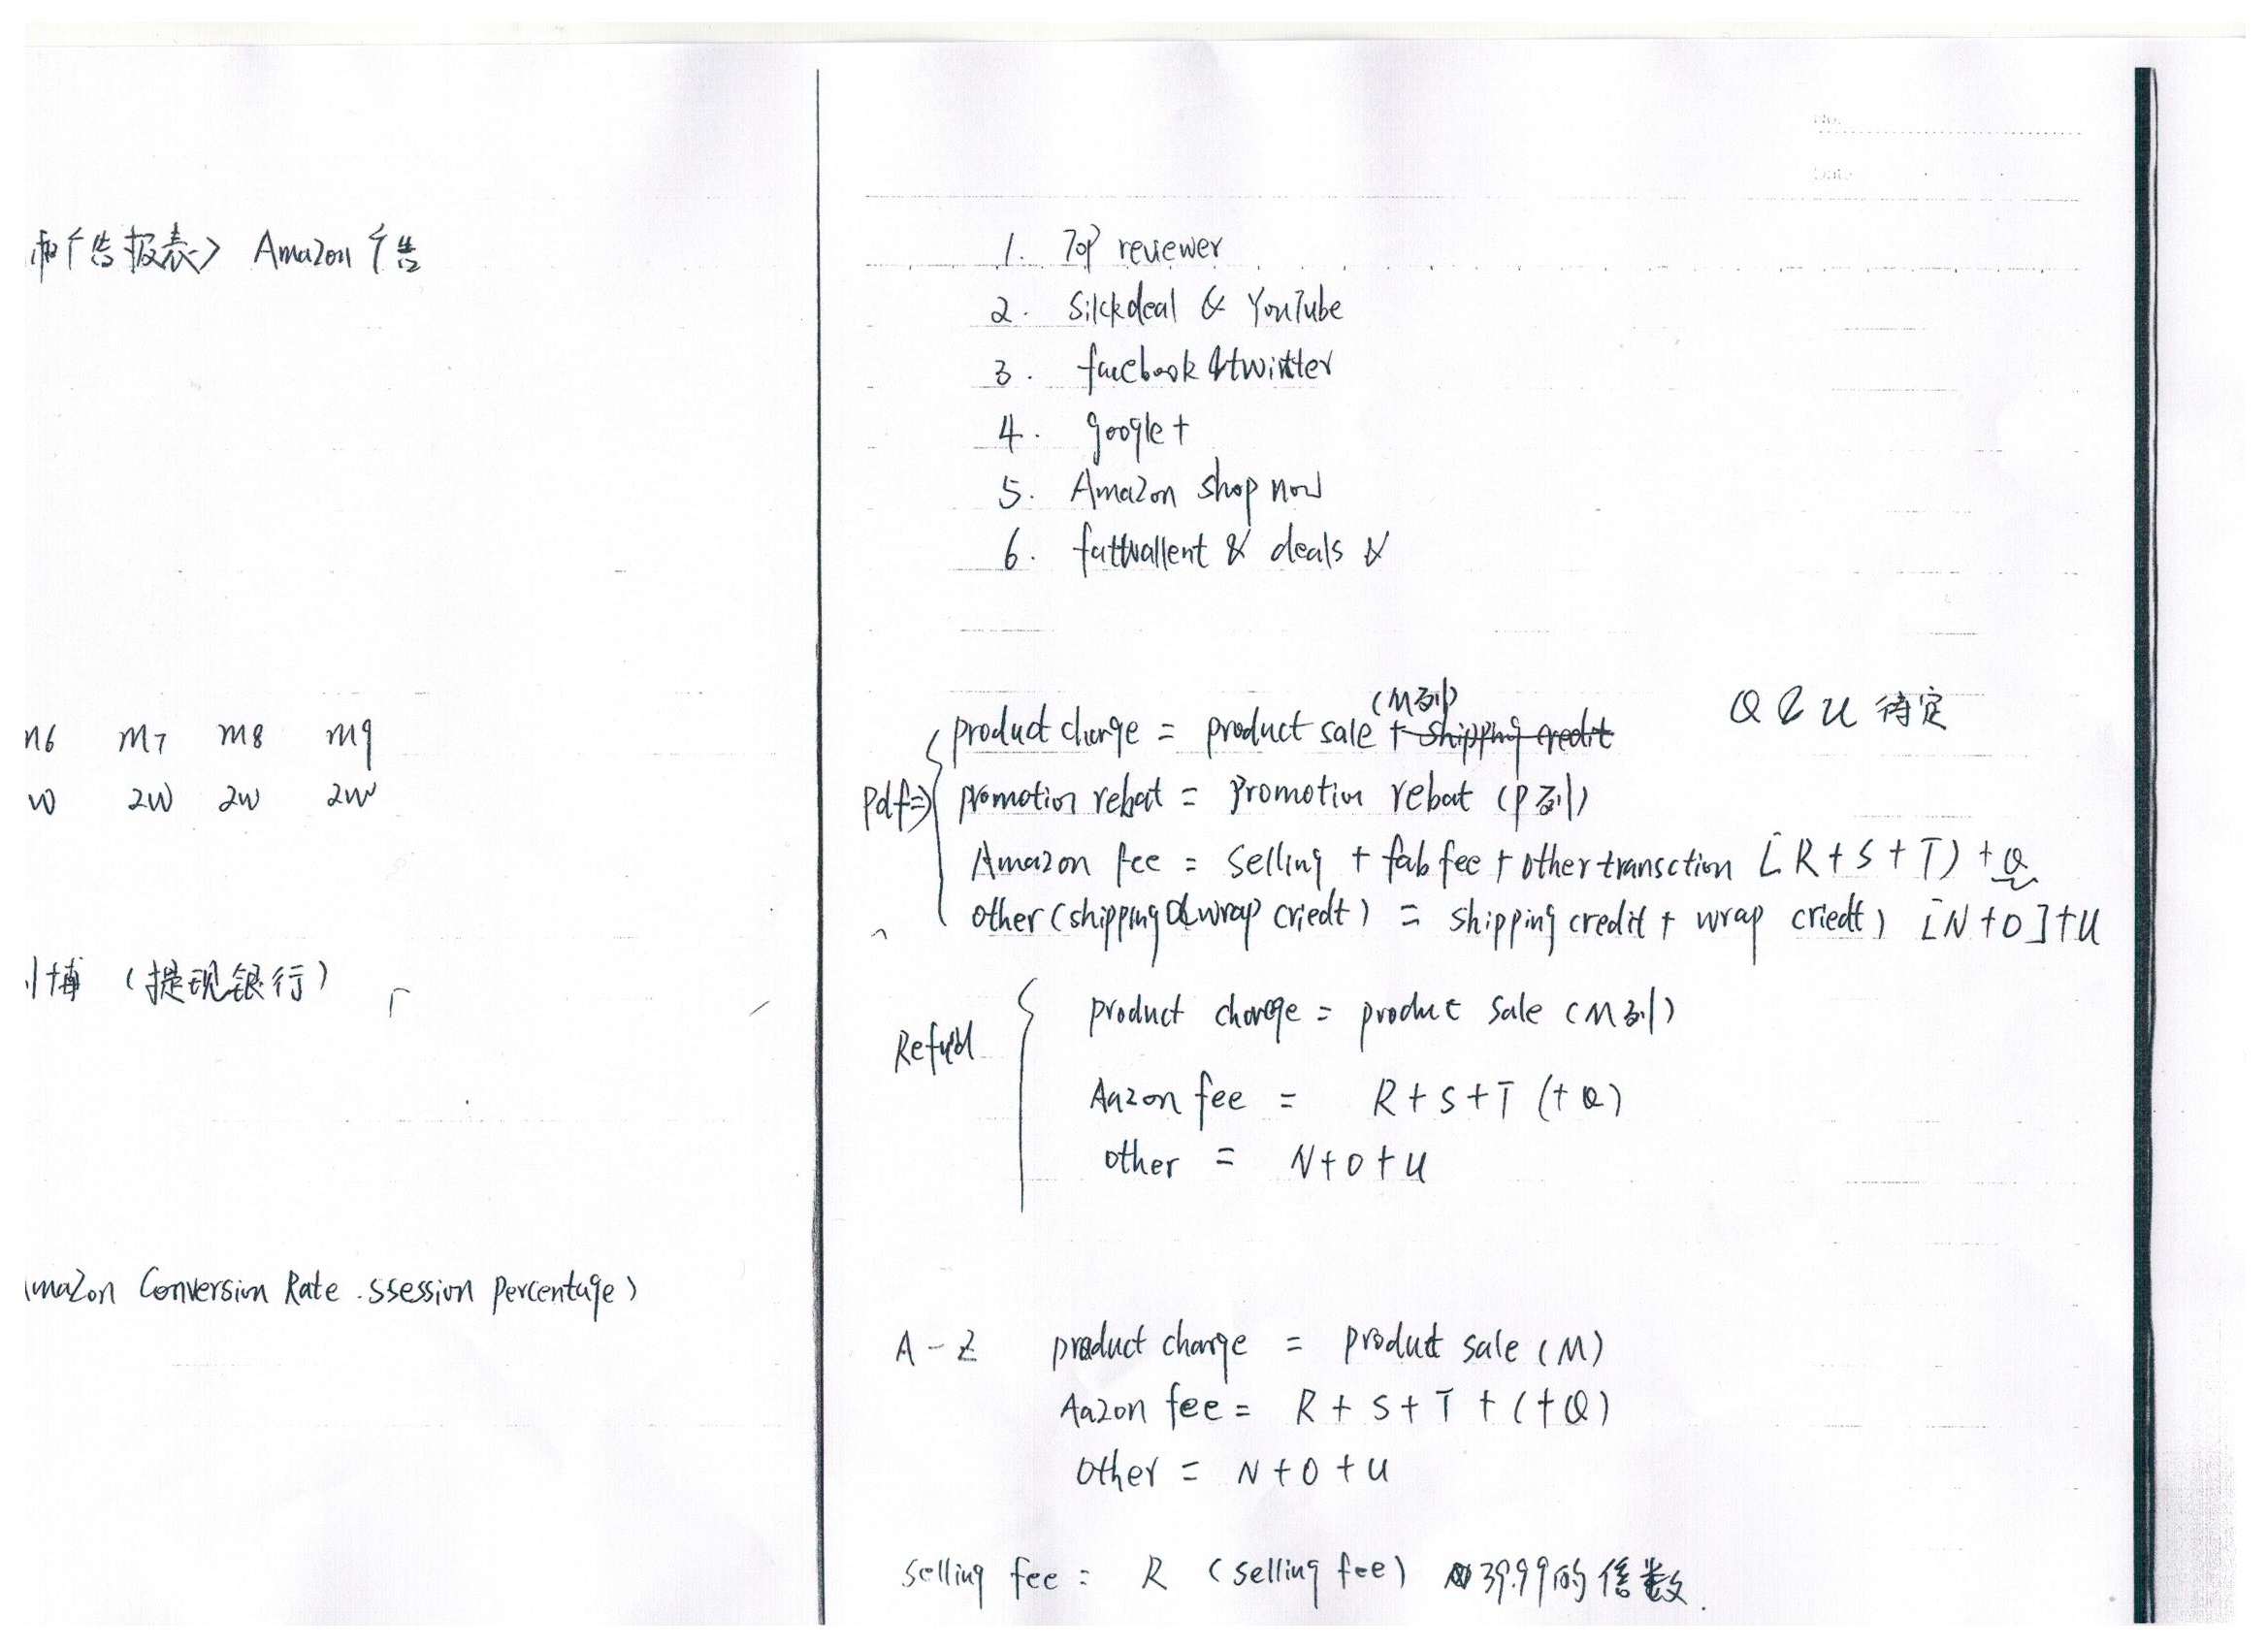 和广告报表) Amazon 广告
m6 m7 m8 m9
w 2w 2w 2w
博 (提现银行)
mazon Conversion Rate . ssession percentage)
No.
Date
1. Top reviewer
2. Silckdeal & YouTube
3. facebook & twitter
4. google +
5. Amazon shop now
6. fattwallent & deals &
(M列)
product charge = product sale + shipping credit
Q & U 待定
pdf⇒
promotion rebat = promotion rebat (P列)
Amazon fee = selling + fab fee + other transction [R+S+T) + Q
other (shipping & wrap criedt) = shipping credit + wrap criedt) [N+O]+U
Refund
product charge = product sale (M列)
Aazon fee = R+S+T (+Q)
other = N+O+U
A-Z product charge = product sale (M)
Aazon fee = R+S+T+(+Q)
other = N+O+U
selling fee = R (selling fee) 39.99的倍数.